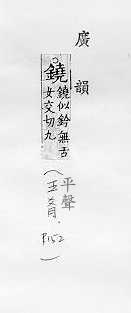 廣韻
鐃
鐃似鈴無舌
女交切九
(平聲
五肴.
P.152
)